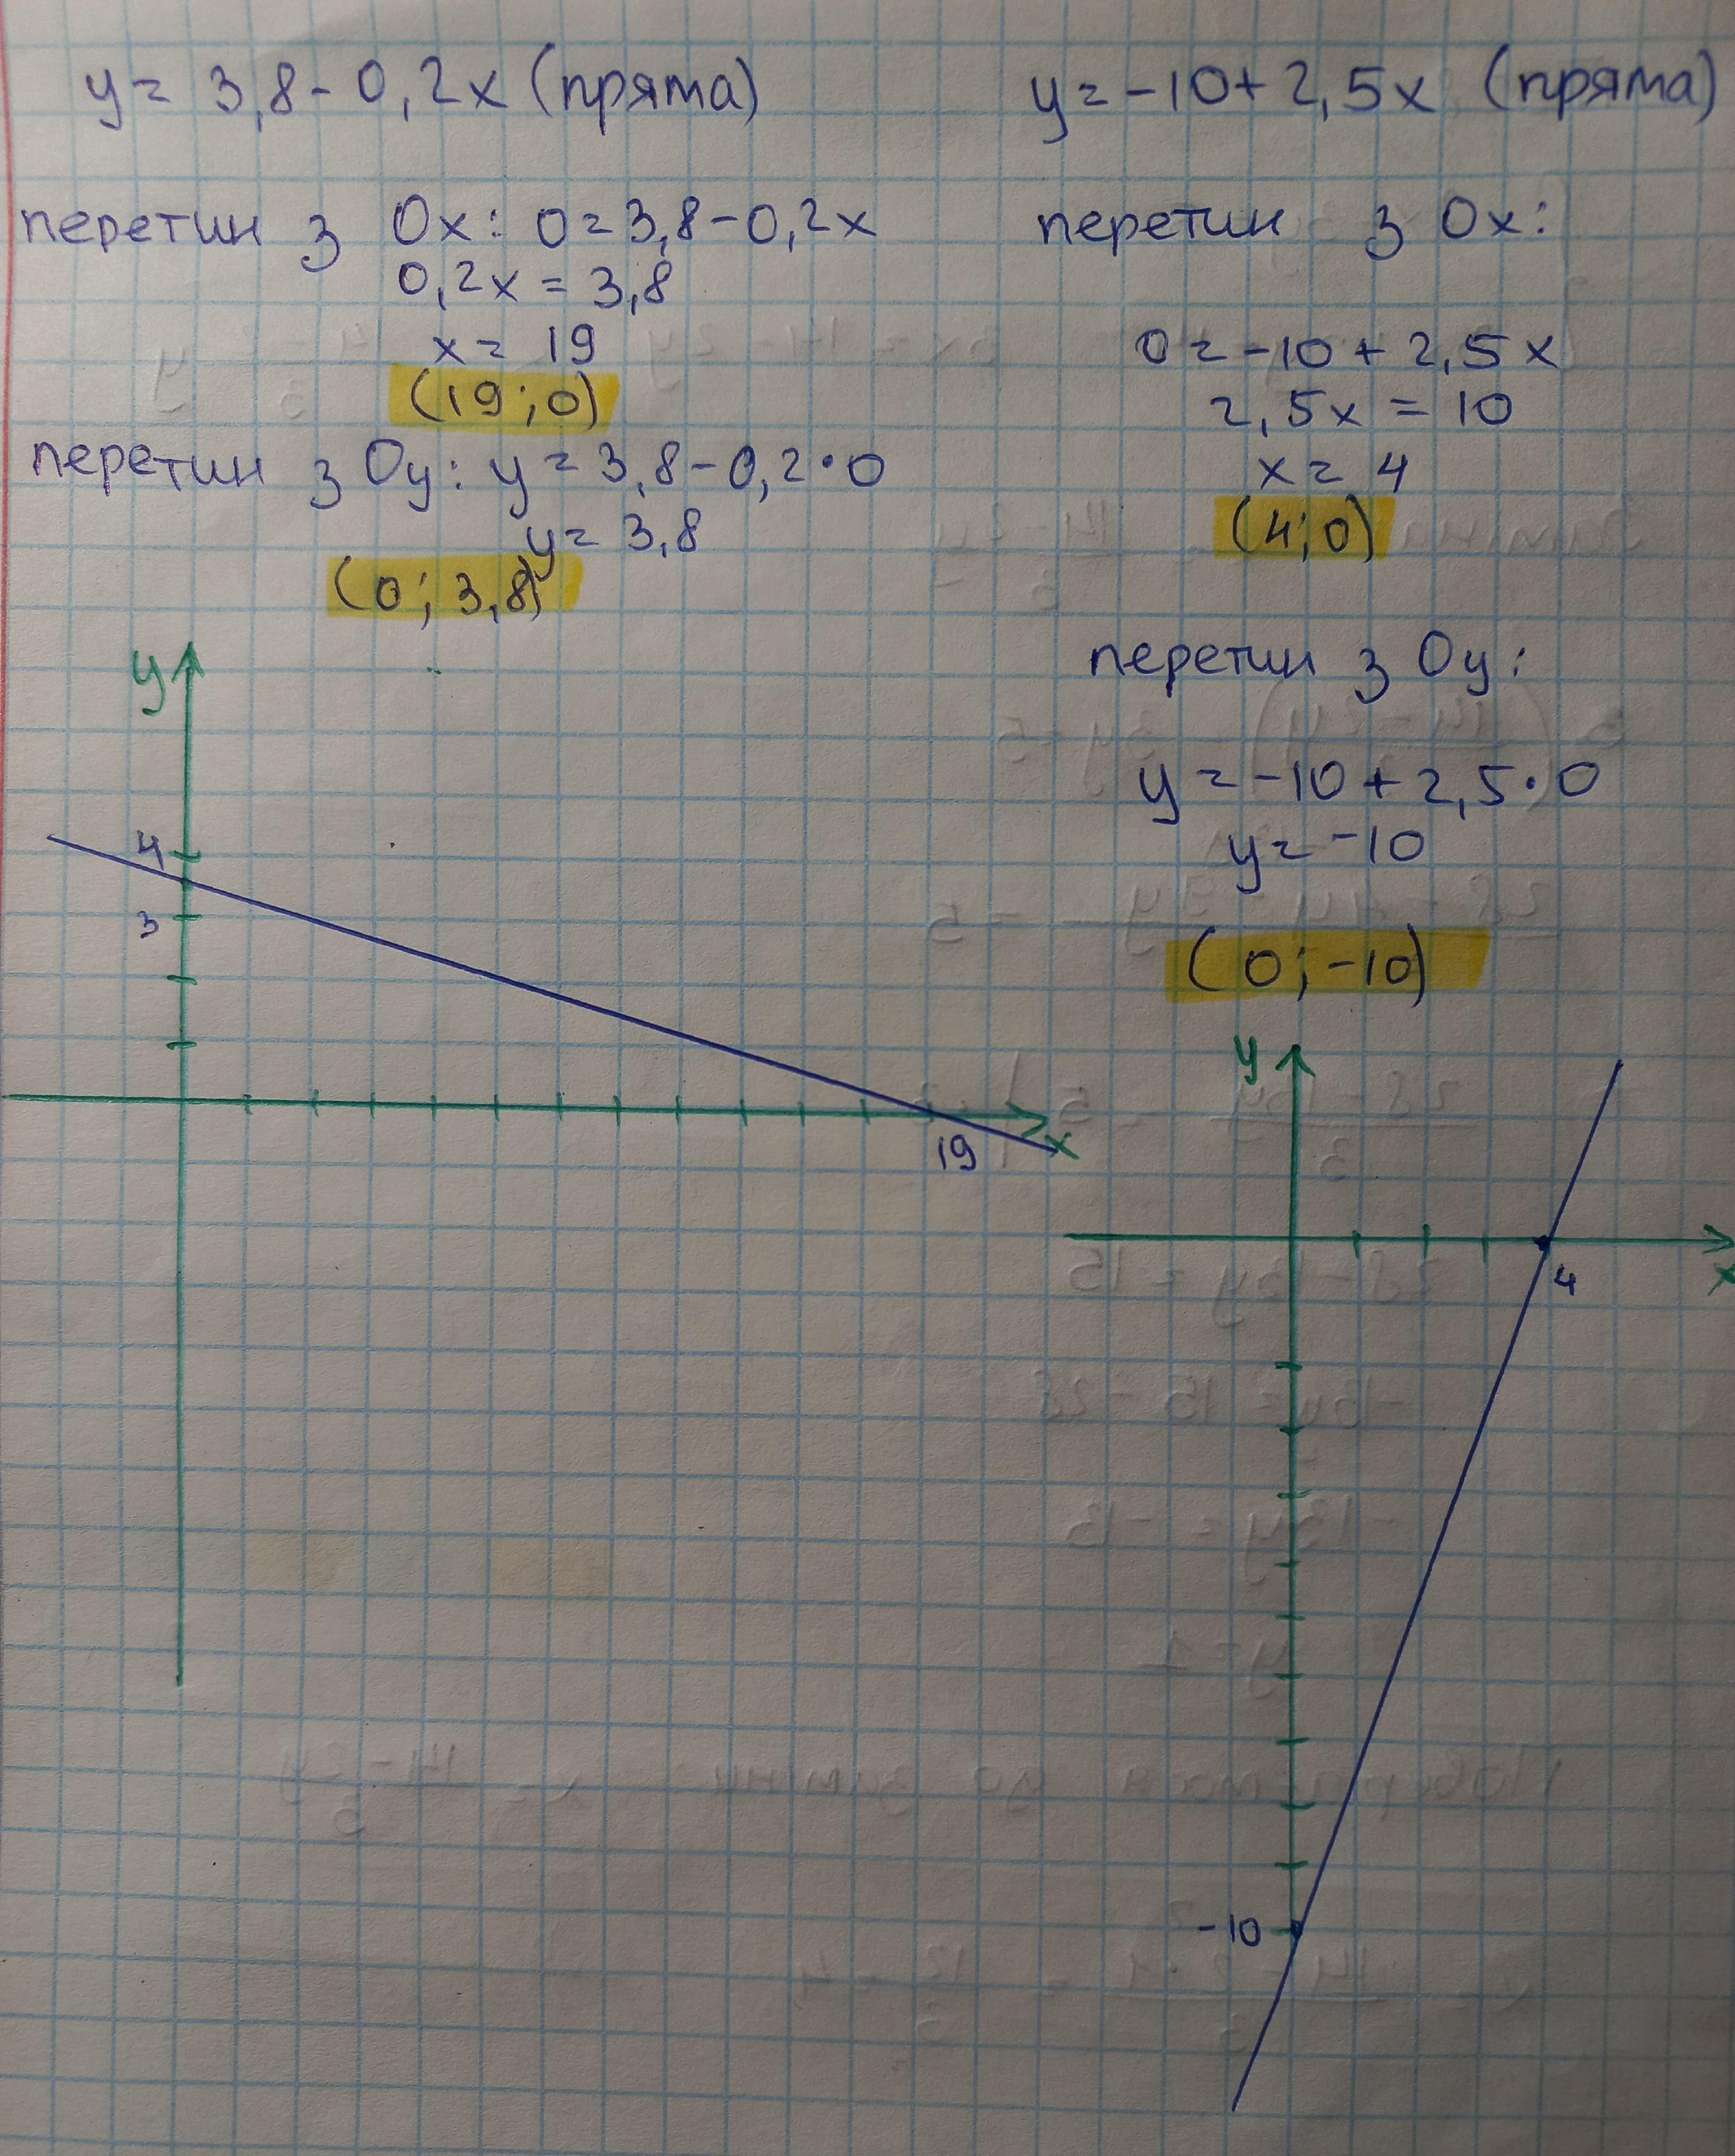 y = 3,8 - 0,2x (пряма)
перетин з Ox: 0 = 3,8 - 0,2x
0,2x = 3,8
x = 19
(19; 0)
перетин з Oy: y = 3,8 - 0,2 • 0
y = 3,8
(0; 3,8)
y
4
3
19
x
y = -10 + 2,5x (пряма)
перетин з Ox:
0 = -10 + 2,5x
2,5x = 10
x = 4
(4; 0)
перетин з Oy:
y = -10 + 2,5 • 0
y = -10
(0; -10)
y
4
x
-10